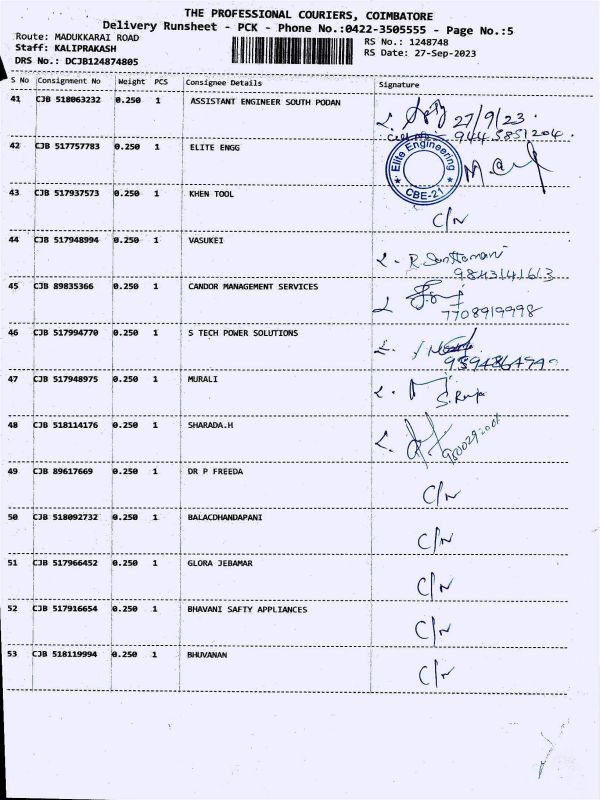 THE PROFESSIONAL COURIERS, COIMBATORE
Delivery Runsheet - PCK - Phone No.:0422-3505555 - Page No.:5
Route: MADUKKARAI ROAD
Staff: KALIPRAKASH
DRS No.: DCJB124874805
RS No.: 1248748
RS Date: 27-Sep-2023
S No Consignment No Weight PCS Consignee Details Signature
41 CJB 518063232 0.250 1 ASSISTANT ENGINEER SOUTH PODAN
27/9/23.
9443851204.
42 CJB 517757783 0.250 1 ELITE ENGG
Elite Engineering
CBE-21
43 CJB 517937573 0.250 1 KHEN TOOL C/N
44 CJB 517948994 0.250 1 VASUKEI
9843141613
45 CJB 89835366 0.250 1 CANDOR MANAGEMENT SERVICES
7708919998
46 CJB 517994770 0.250 1 S TECH POWER SOLUTIONS
47 CJB 517948975 0.250 1 MURALI
48 CJB 518114176 0.250 1 SHARADA.H
49 CJB 89617669 0.250 1 DR P FREEDA C/N
50 CJB 518092732 0.250 1 BALACDHANDAPANI C/N
51 CJB 517966452 0.250 1 GLORA JEBAMAR C/N
52 CJB 517916654 0.250 1 BHAVANI SAFTY APPLIANCES C/N
53 CJB 518119994 0.250 1 BHUVANAN C/N